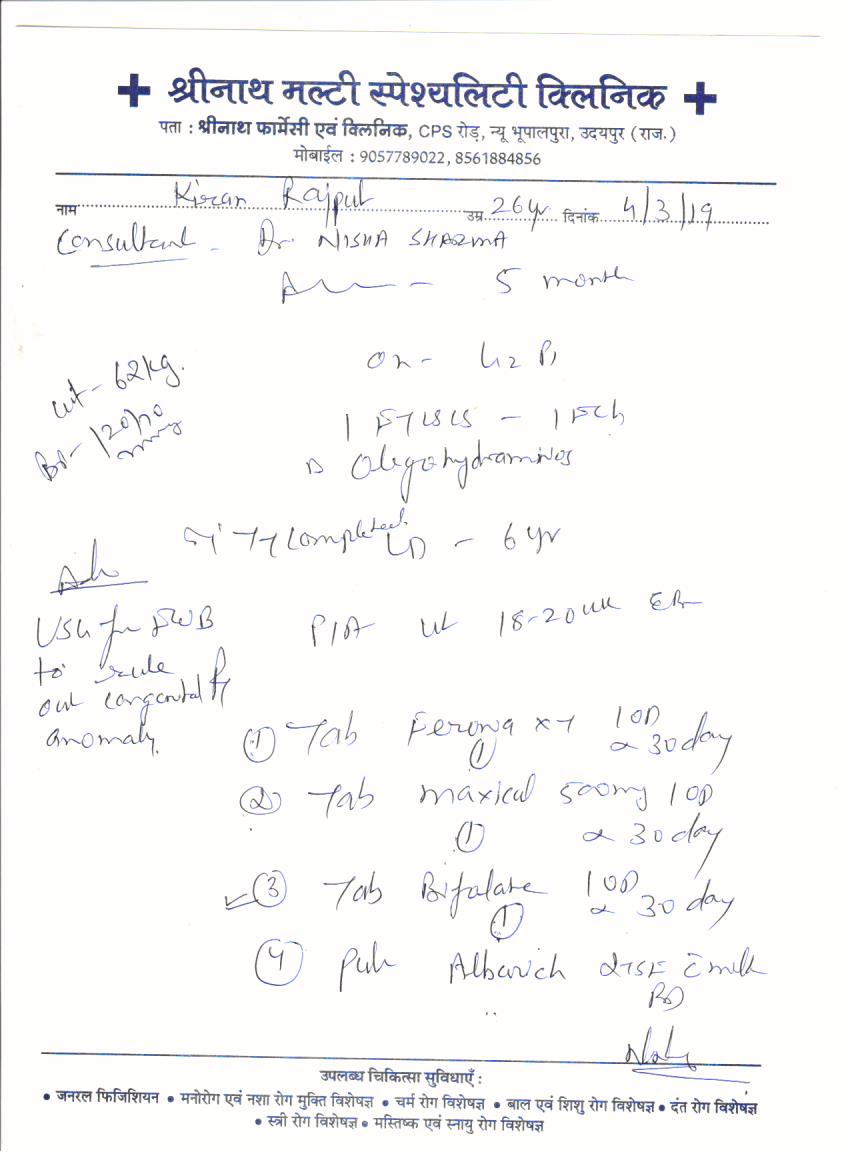 श्रीनाथ मल्टी स्पेश्यलिटी क्लिनिक
पता : श्रीनाथ फार्मेसी एवं क्लिनिक, CPS रोड़, न्यू भूपालपुरा, उदयपुर (राज.)
मोबाईल : 9057789022, 8561884856
नाम Kiran Rajput उम्र 26 yr दिनांक 4/3/19
Consultant - Dr. NISHA SHARMA
5 month
wt - 62 kg.
BP - 120/70
mmHg
On - G2 P1
1 FTLSCS - 1 FCh
Oligohydramnios
TT Completed.
LD - 6 yr
Adv
USG for FWB
to rule
out congenital
anomaly.
P/A ut 18-20 wk
① Tab Ferona XT 1OD
① x 30 day
② Tab Maxical 500mg 1OD
① x 30 day
③ Tab Bifolate 1OD
① x 30 day
④ Albarich 2TSF c milk
BD
उपलब्ध चिकित्सा सुविधाएँ :
• जनरल फिजिशियन • मनोरोग एवं नशा रोग मुक्ति विशेषज्ञ • चर्म रोग विशेषज्ञ • बाल एवं शिशु रोग विशेषज्ञ • दंत रोग विशेषज्ञ
• स्त्री रोग विशेषज्ञ • मस्तिष्क एवं स्नायु रोग विशेषज्ञ